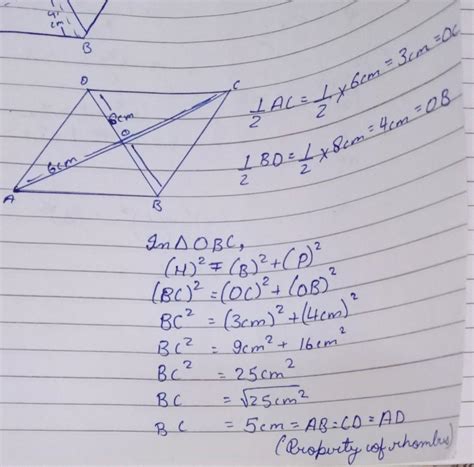 4
cm
B
D
C
8cm
O
6cm
A
B
1/2 AC = 1/2 × 6cm = 3cm = OC
1/2 BD = 1/2 × 8cm = 4cm = OB
In △ OBC,
(H)² = (B)² + (P)²
(BC)² = (OC)² + (OB)²
BC² = (3cm)² + (4cm)²
BC² = 9cm² + 16cm²
BC² = 25cm²
BC = √25cm²
BC = 5cm = AB = CD = AD
(Property of rhombus)